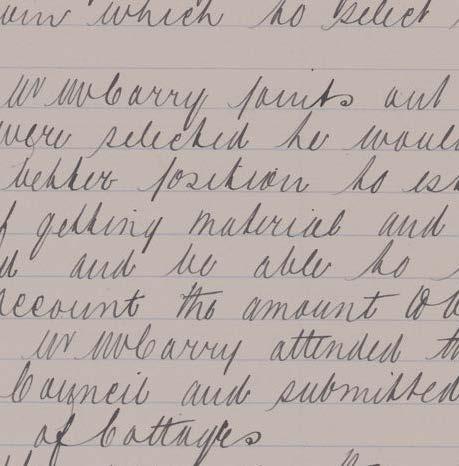 which to select
Mr McCarry points out
were selected he would
better position to
getting material and
and be able to
account the amount to
Mr McCarry attended
Council and submitted
of Cottages